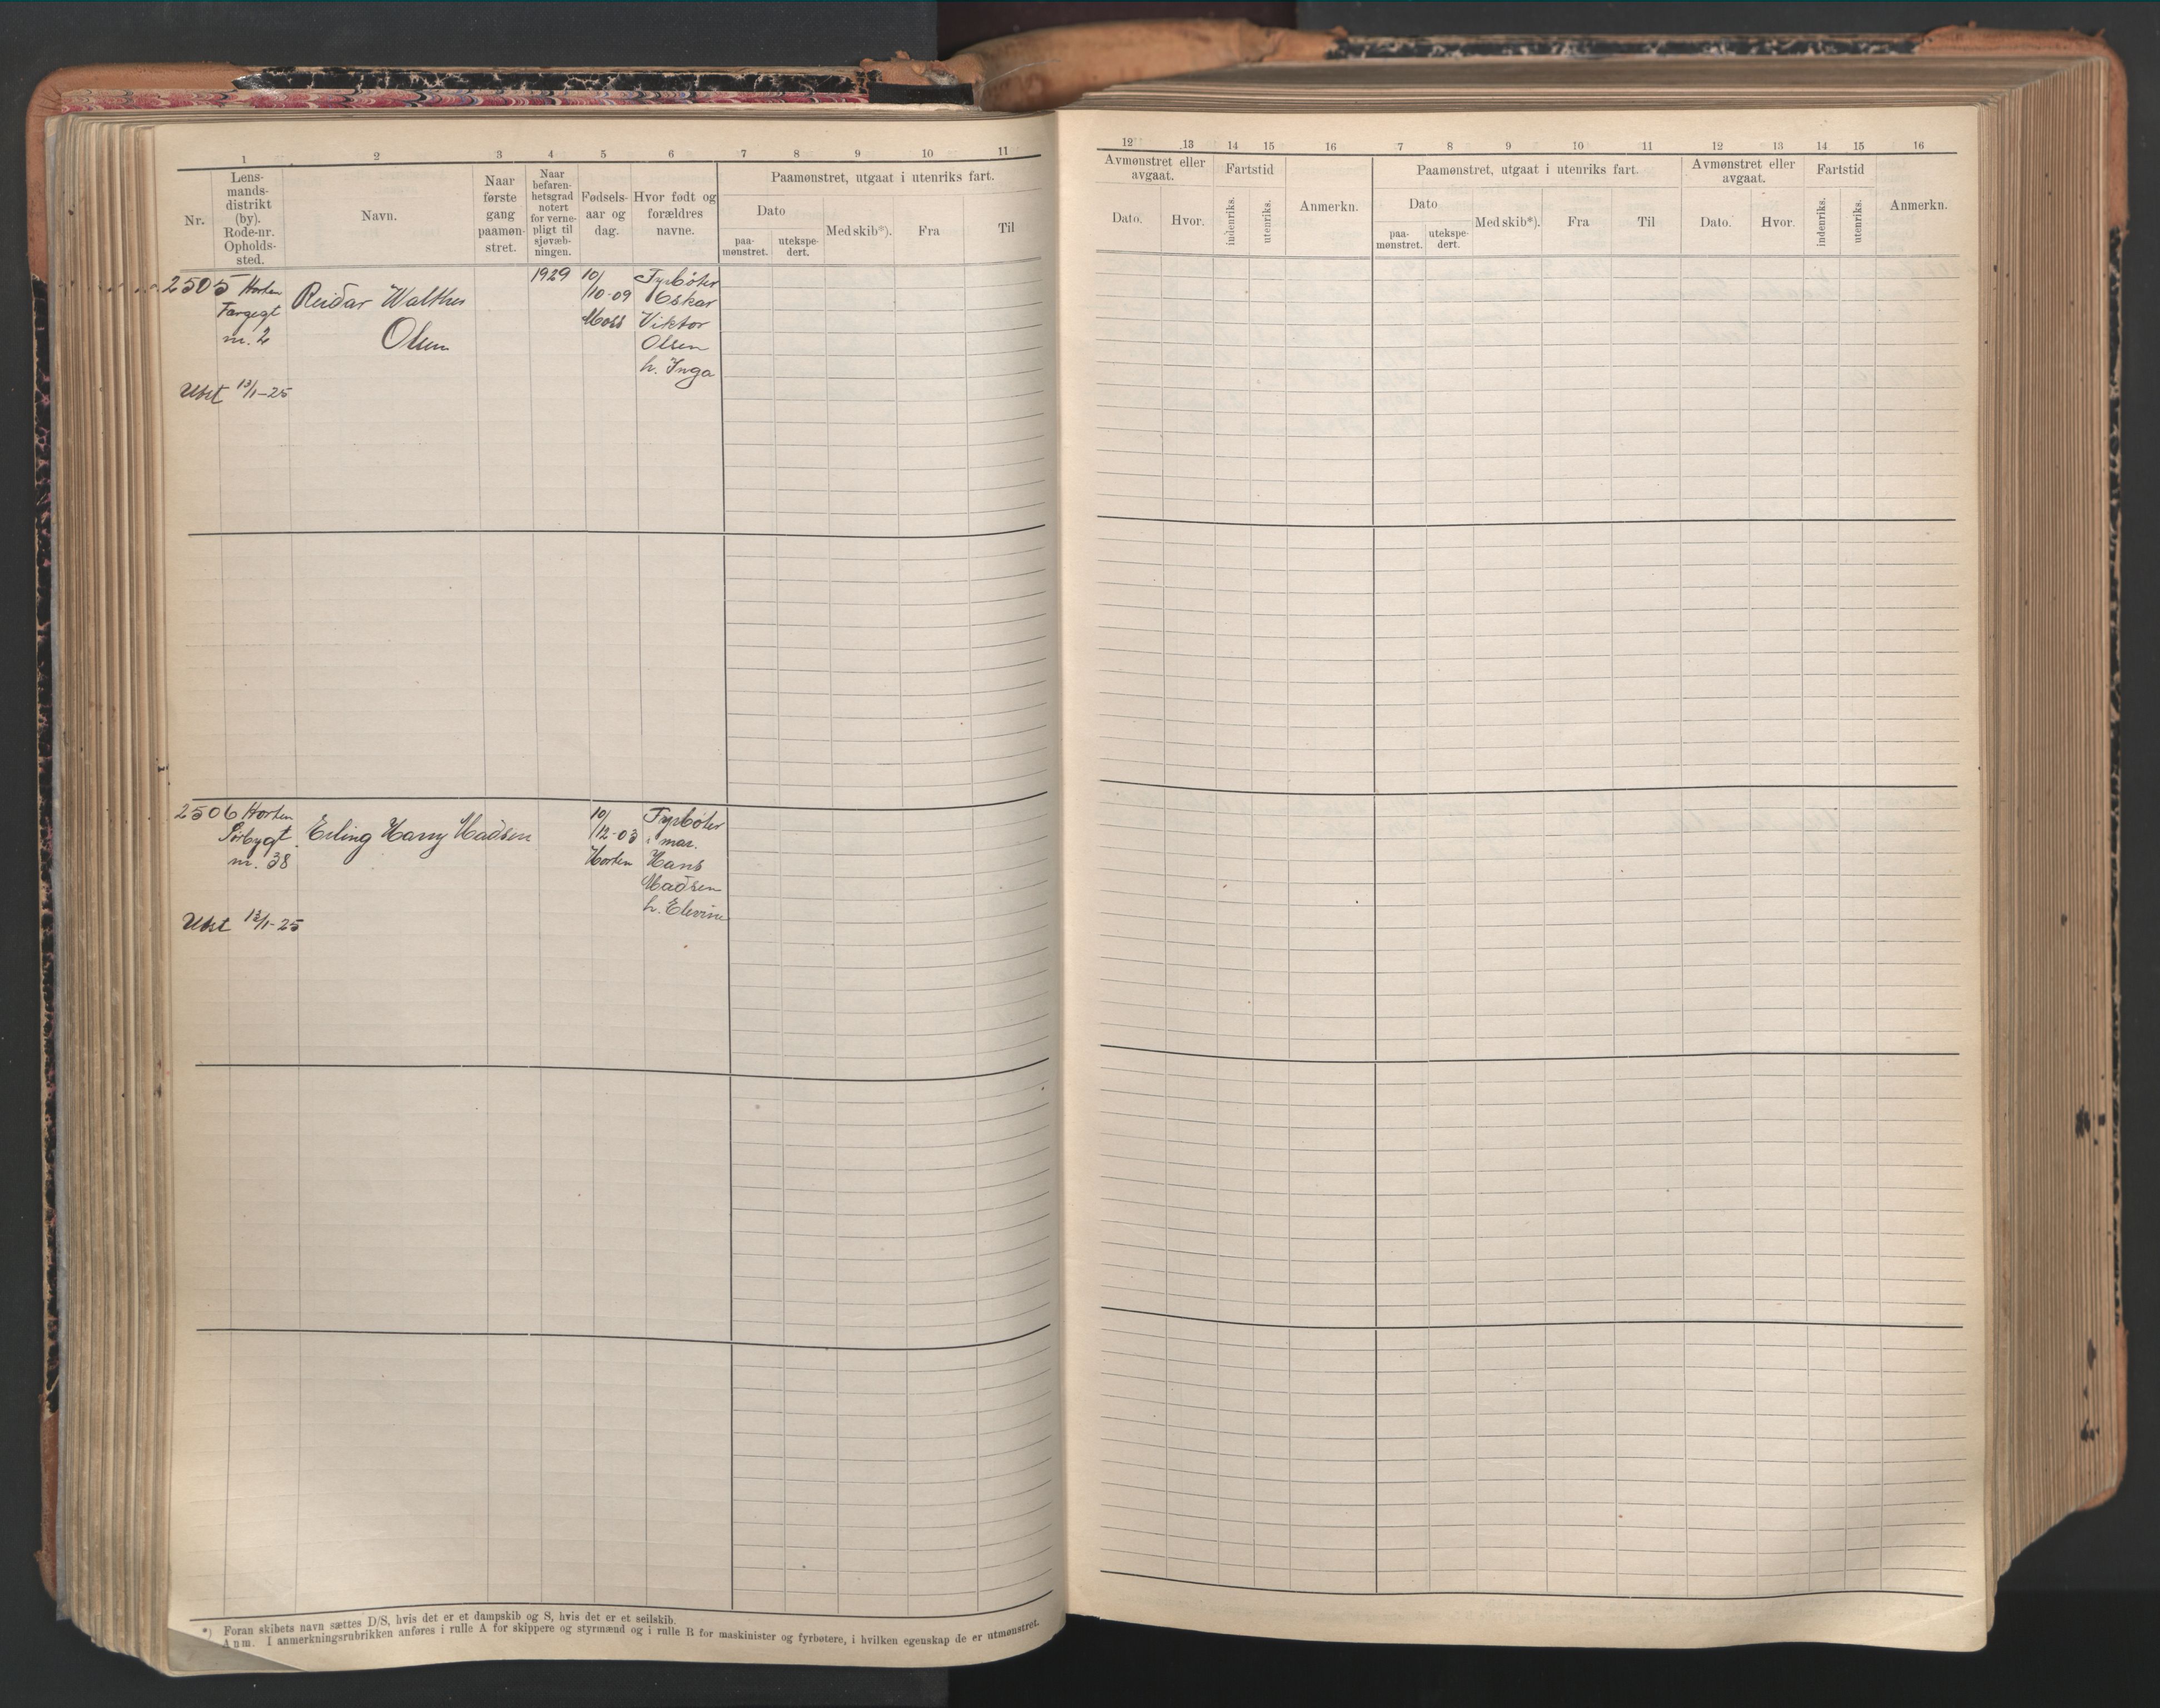 1 2 3 4 5 6 7 8 9 10 11
Nr.
Lens-
mands-
distrikt
(by).
Rode-nr.
Opholds-
sted.
Navn.
Naar
første
gang
paamøn-
stret.
Naar
befaren-
hetsgrad
notert
for verne-
pligt til
sjøvæb-
ningen.
Fødsels-
aar og
dag.
Hvor født og
forældres
navne.
Paamønstret, utgaat i utenriks fart.
Dato
paa-
mønstret.
utekspe-
dert.
Med skib*).
Fra
Til
2505 Horten
nr. 2
Reidar Walther
Olsen
1929
10/
10-09
Moss
Fyrbøter
Oskar
Viktor
Olsen
h. Inga
Utst 13/1-25
2506 Horten
nr. 38
Erling Harry Madsen
10/
12-03
Horten
Fyrbøter
i mar.
Hans
Madsen
h. Elevine
Utst 13/1-25
*) Foran skibets navn sættes D/S, hvis det er et dampskib og S, hvis det er et seilskib.
Anm. I anmerkningsrubrikken anføres i rulle A for skippere og styrmænd og i rulle B for maskinister og fyrbøtere, i hvilken egenskap de er utmønstret.
12 13 14 15 16 7 8 9 10 11 12 13 14 15 16
Avmønstret eller
avgaat.
Dato.
Hvor.
Fartstid
indenriks.
utenriks.
Anmerkn.
Paamønstret, utgaat i utenriks fart.
Dato
paa-
mønstret.
utekspe-
dert.
Med skib*).
Fra
Til
Avmønstret eller
avgaat.
Dato.
Hvor.
Fartstid
indenriks.
utenriks.
Anmerkn.